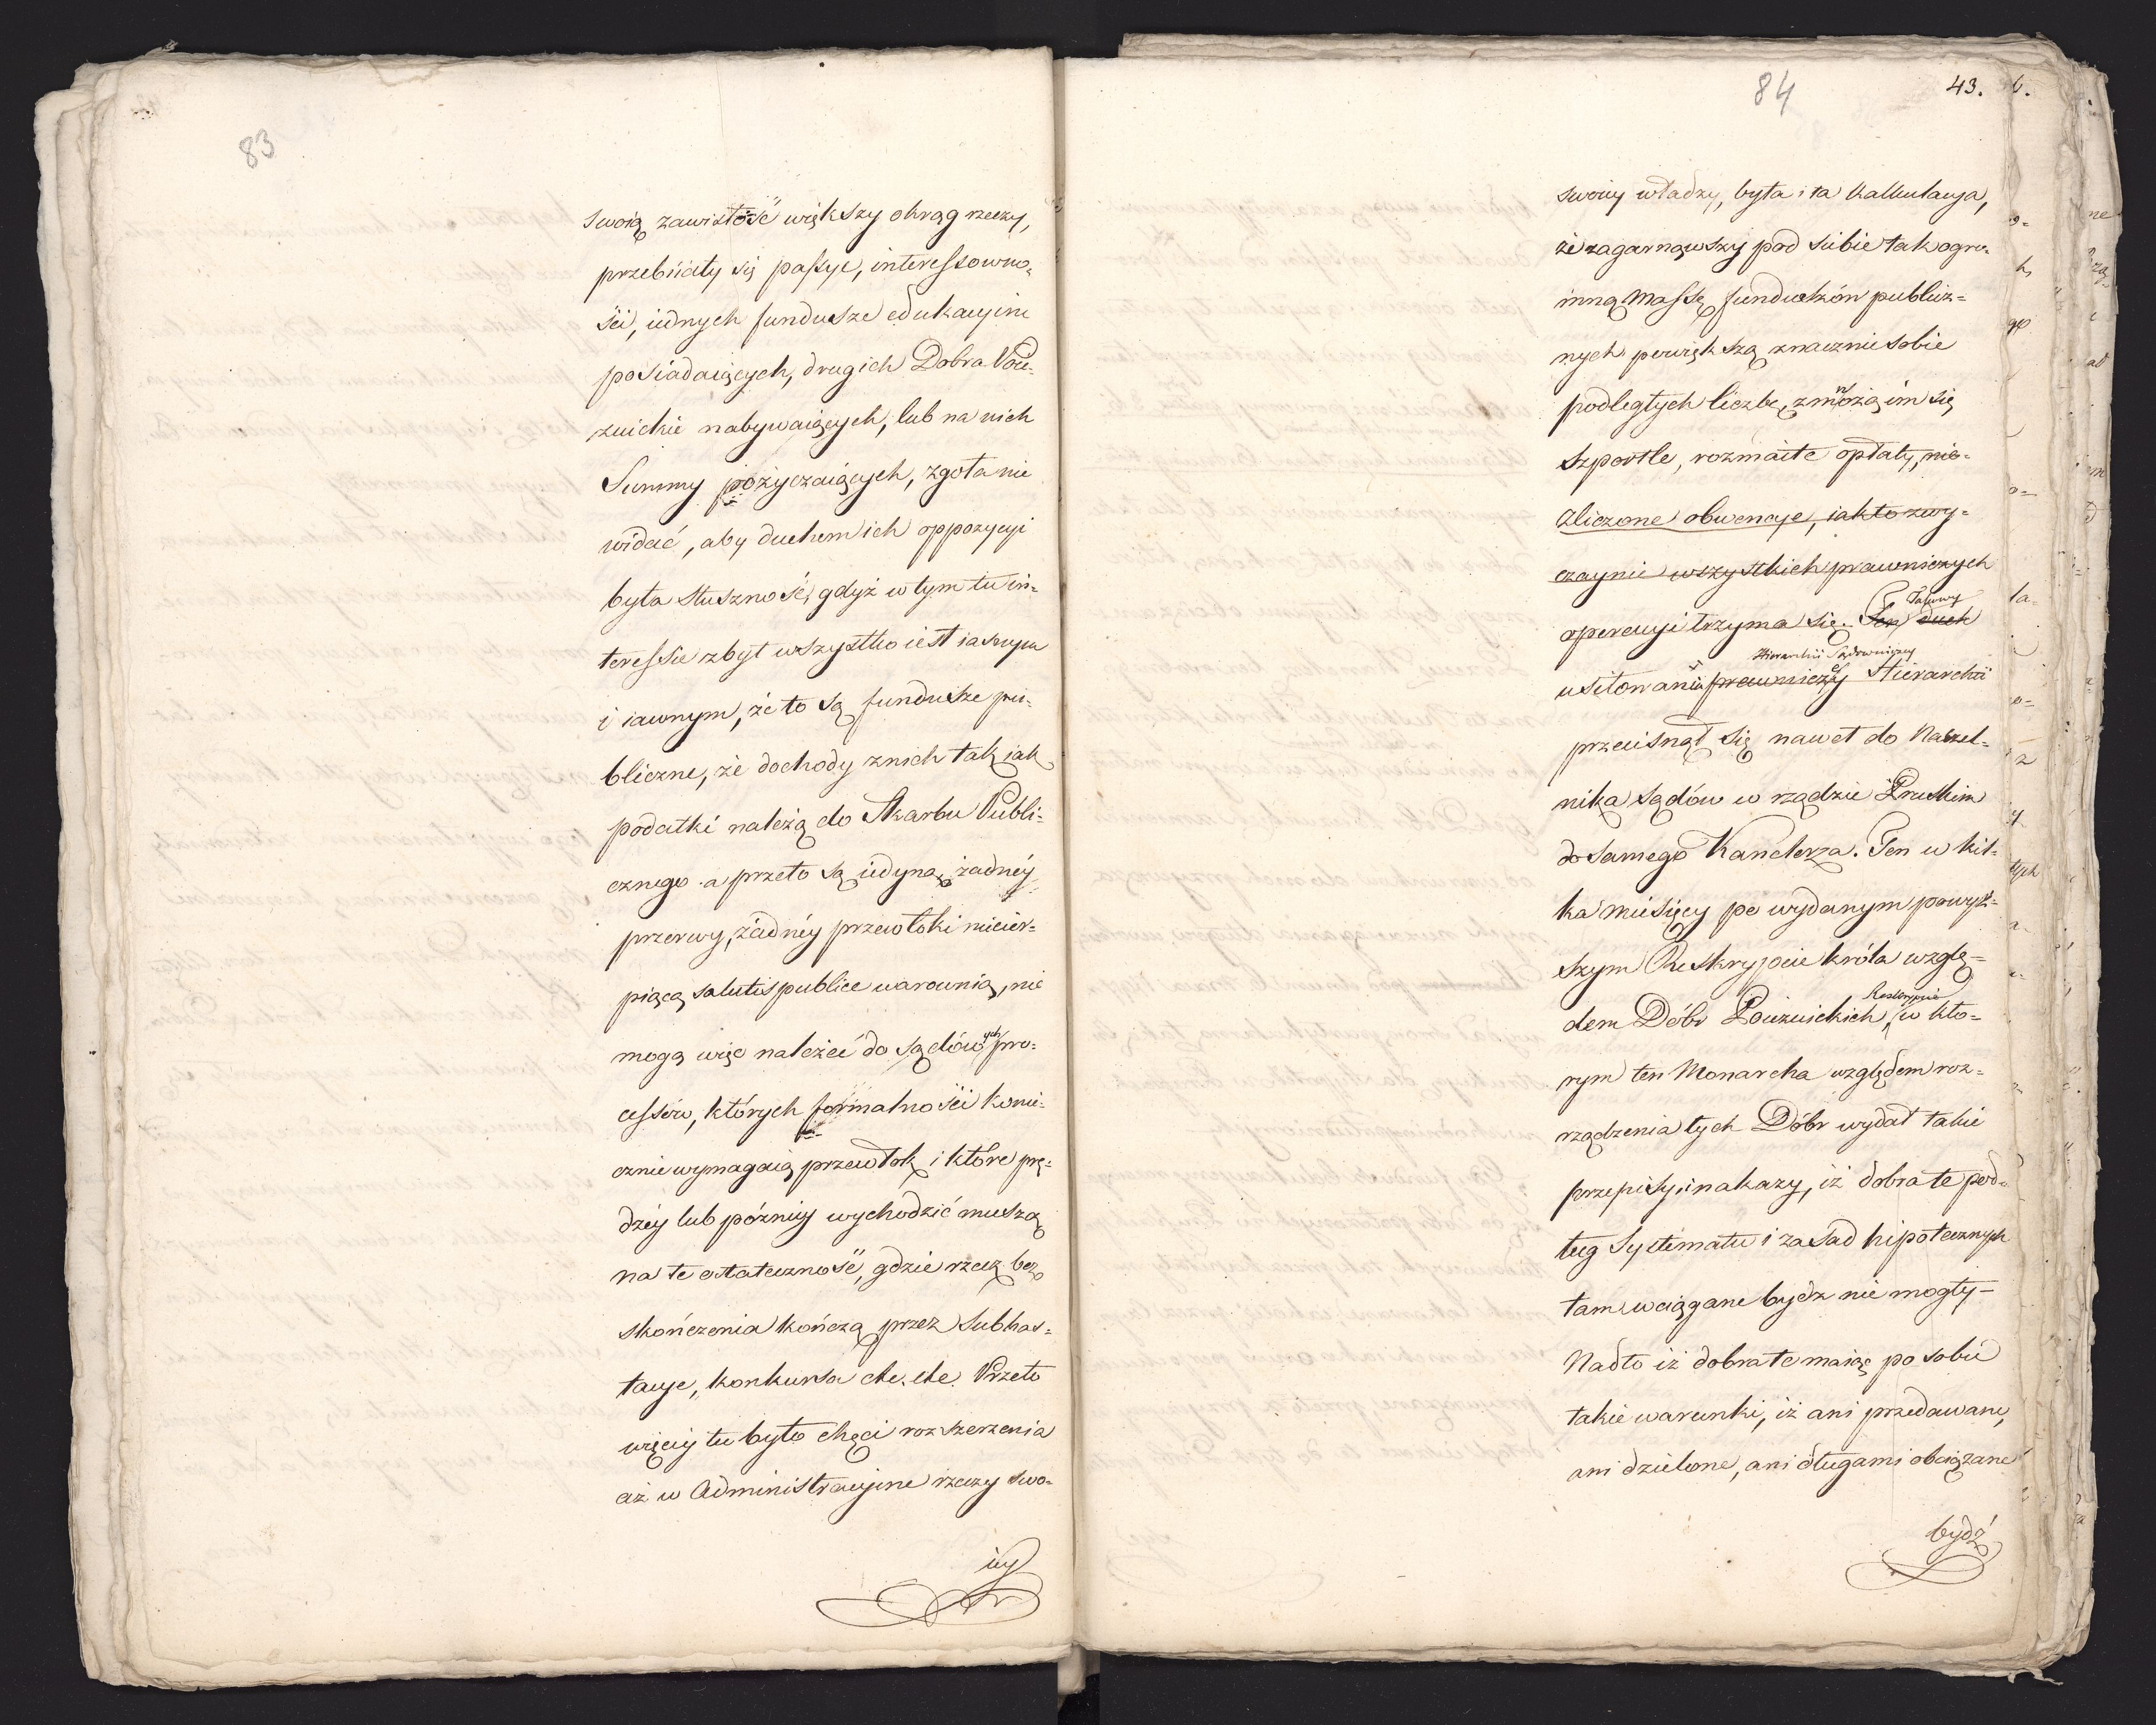 83
swoią zawisłość większy okrąg rzeczy,
przebiiały się passye, interessowno-
ści, iednych fundusze edukacyine
posiadaiących, drugich Dobra Poie-
zuickie nabywaiących, lub na nich
Summy pożyczaiących, zgoła nie
widać, aby duchem ich oppozycyi
była słuszność, gdyż w tym tu in-
teressie zbyt wszystko iest iasnym
i iawnym, że to są fundusze pu-
bliczne, że dochody z nich tak iak
podatki należą do Skarbu Publi-
cznego a przeto są iedyną, żadnéy
przerwy, żadnéy przewłoki niecier-
piącą salutis publice warownią, nie
mogą więc należeć do sądowych pro-
cessów, których formalności konie-
cznie wymagaią przewłok i które prę-
dzéy lub późniey wychodzić muszą
na te ostateczność, gdzie rzecz bez
skończenia kończą przez Subhas-
tacye, konkursa etc. etc. Przeto
więcey tu było chęci rozszerzenia
aż w Administracyine rzeczy swo-
iey
84
43.
swoiey władzy, była i ta kalkulacya,
że zagarnąwszy pod siebie tak ogro-
mną massę funduszów publicz-
nych powiększą znacznie sobie
podległych liczbę, zmnożą im się
szportle, rozmaite opłaty, nie-
zliczone obwencye, iak to zwy-
czaynie wszystkich prawniczych
operacyi trzyma się. Ten duch
Takowy
Hierarchii Sądowniczey
usiłowania prawniczey Hierarchii
przecisnął się nawet do Naczel-
nika sądów w rządzie Pruskim
do samego Kanclerza. Ten w kil-
ka miesięcy po wydanym powyż-
szym Reskrypcie króla wzglę-
dem Dóbr Poiezuickich, Reskrypcie w któ-
rym ten Monarcha względem roz-
rządzenia tych Dóbr wydał takie
przepisy i nakazy, iż dobra te pod-
ług Systematu i zasad hipotecznych
tam wciągane bydz nie mogły-
Nadto iż dobra te maiąc po sobie
takie warunki, iż ani przedawane,
ani dzielone, ani długami obciążane
bydź